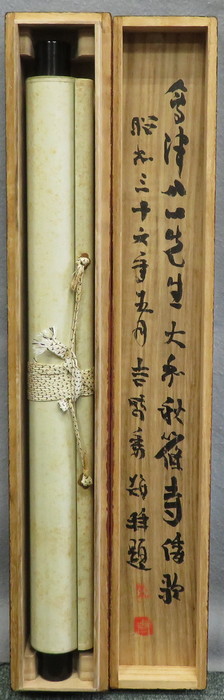 會津八一先生大和秋篠寺倭歌
昭和三十六年五月吉野秀雄拝題